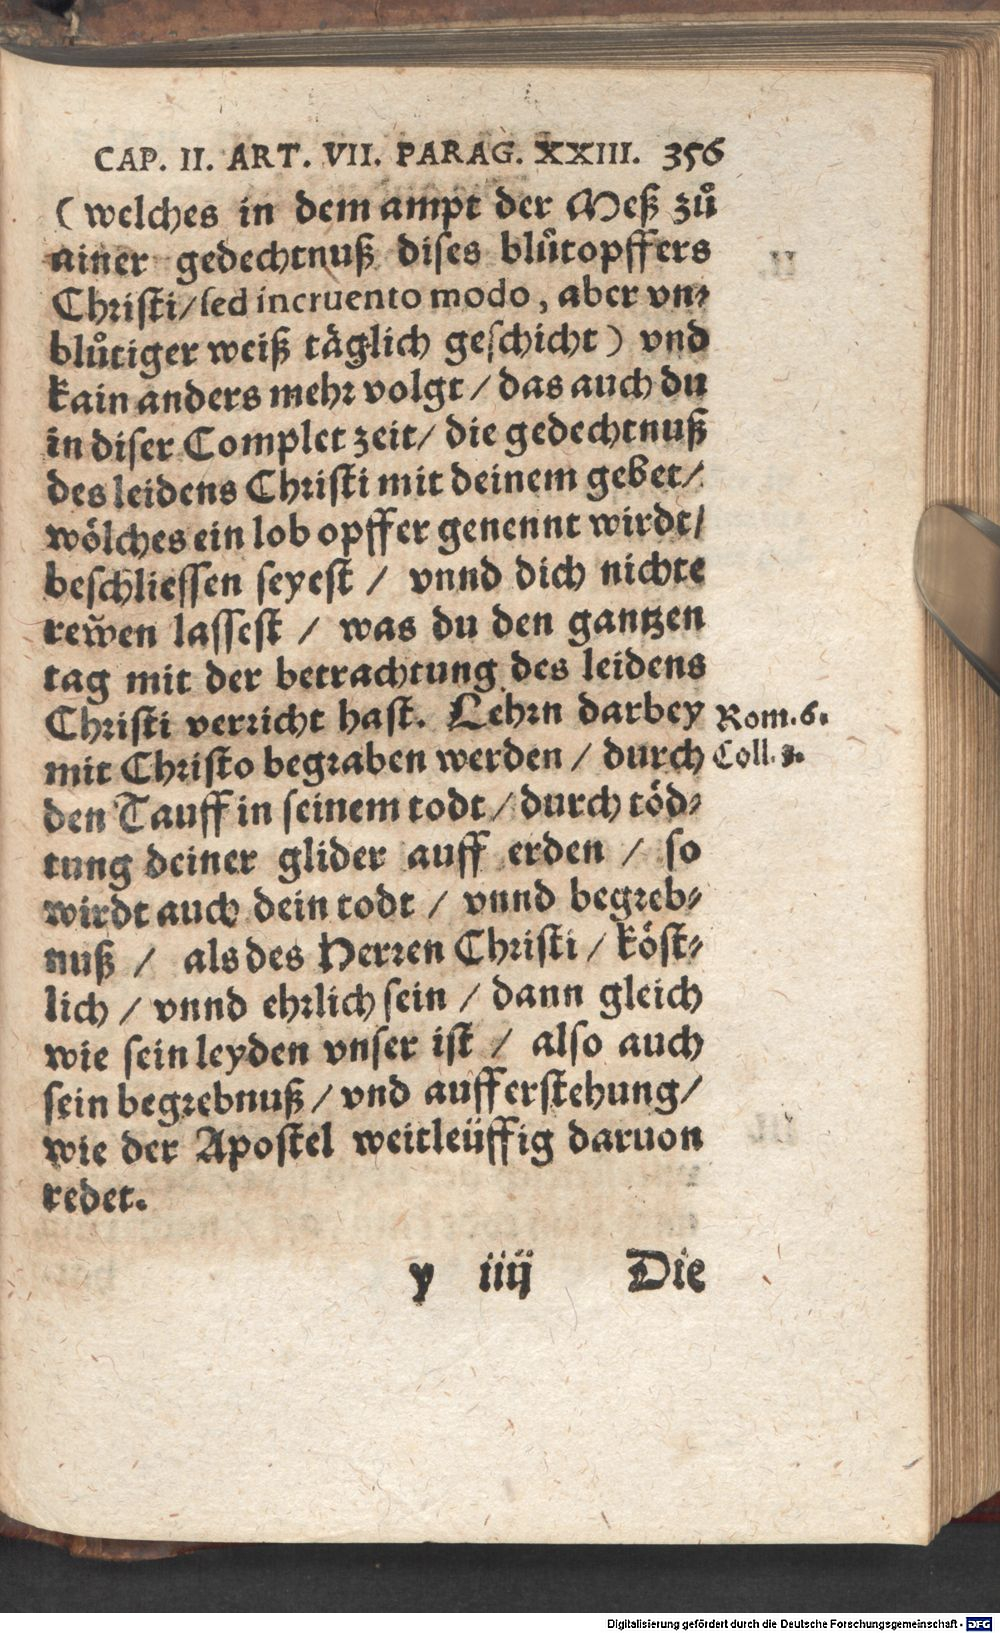 CAP. II. ART. VII. PARAG. XXIII. 356
(welches in dem ampt der Meß zů
ainer gedechtnuß dises blůtopffers
Christi/ sed incruento modo, aber vn⸗
blůtiger weiß täglich geschicht) vnd
kain anders mehr volgt / das auch du
in diser Complet zeit/ die gedechtnuß
des leidens Christi mit deinem gebet/
wölches ein lob opffer genennt wirdt/
beschliessen seyest / vnnd dich nichte
rewen lassest / was du den gantzen
tag mit der betrachtung des leidens
Christi verricht hast. Lehrn darbey Rom. 6.
mit Christo begraben werden / durch Coll. 3.
den Tauff in seinem todt / durch töd⸗
tung deiner glider auff erden / so
wirdt auch dein todt / vnnd begreb⸗
nuß / als des Herren Christi / köst⸗
lich / vnnd ehrlich sein / dann gleich
wie sein leyden vnser ist / also auch
sein begrebnuß / vnd aufferstehung/
wie der Apostel weitleüffig daruon
redet.
y iiij Die
Digitalisierung gefördert durch die Deutsche Forschungsgemeinschaft - DFG